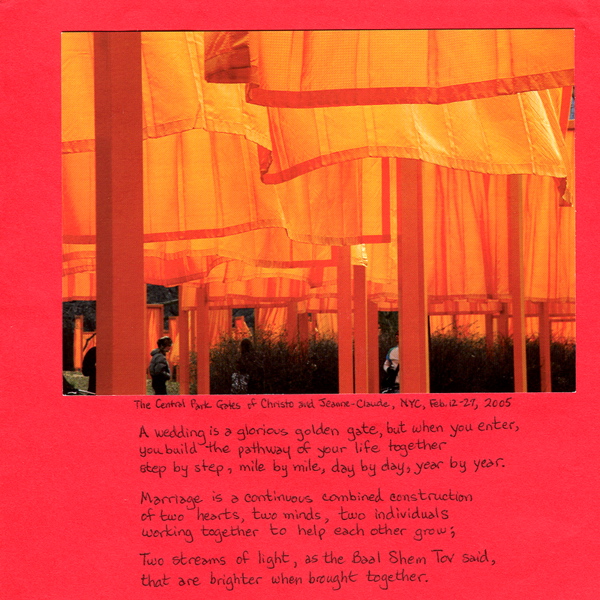 The Central Park Gates of Christo and Jeanne-Claude, NYC, Feb. 12-27, 2005
A wedding is a glorious golden gate, but when you enter,
you build the pathway of your life together
step by step, mile by mile, day by day, year by year.
Marriage is a continuous combined construction
of two hearts, two minds, two individuals
working together to help each other grow;
Two streams of light, as the Baal Shem Tov said,
that are brighter when brought together.